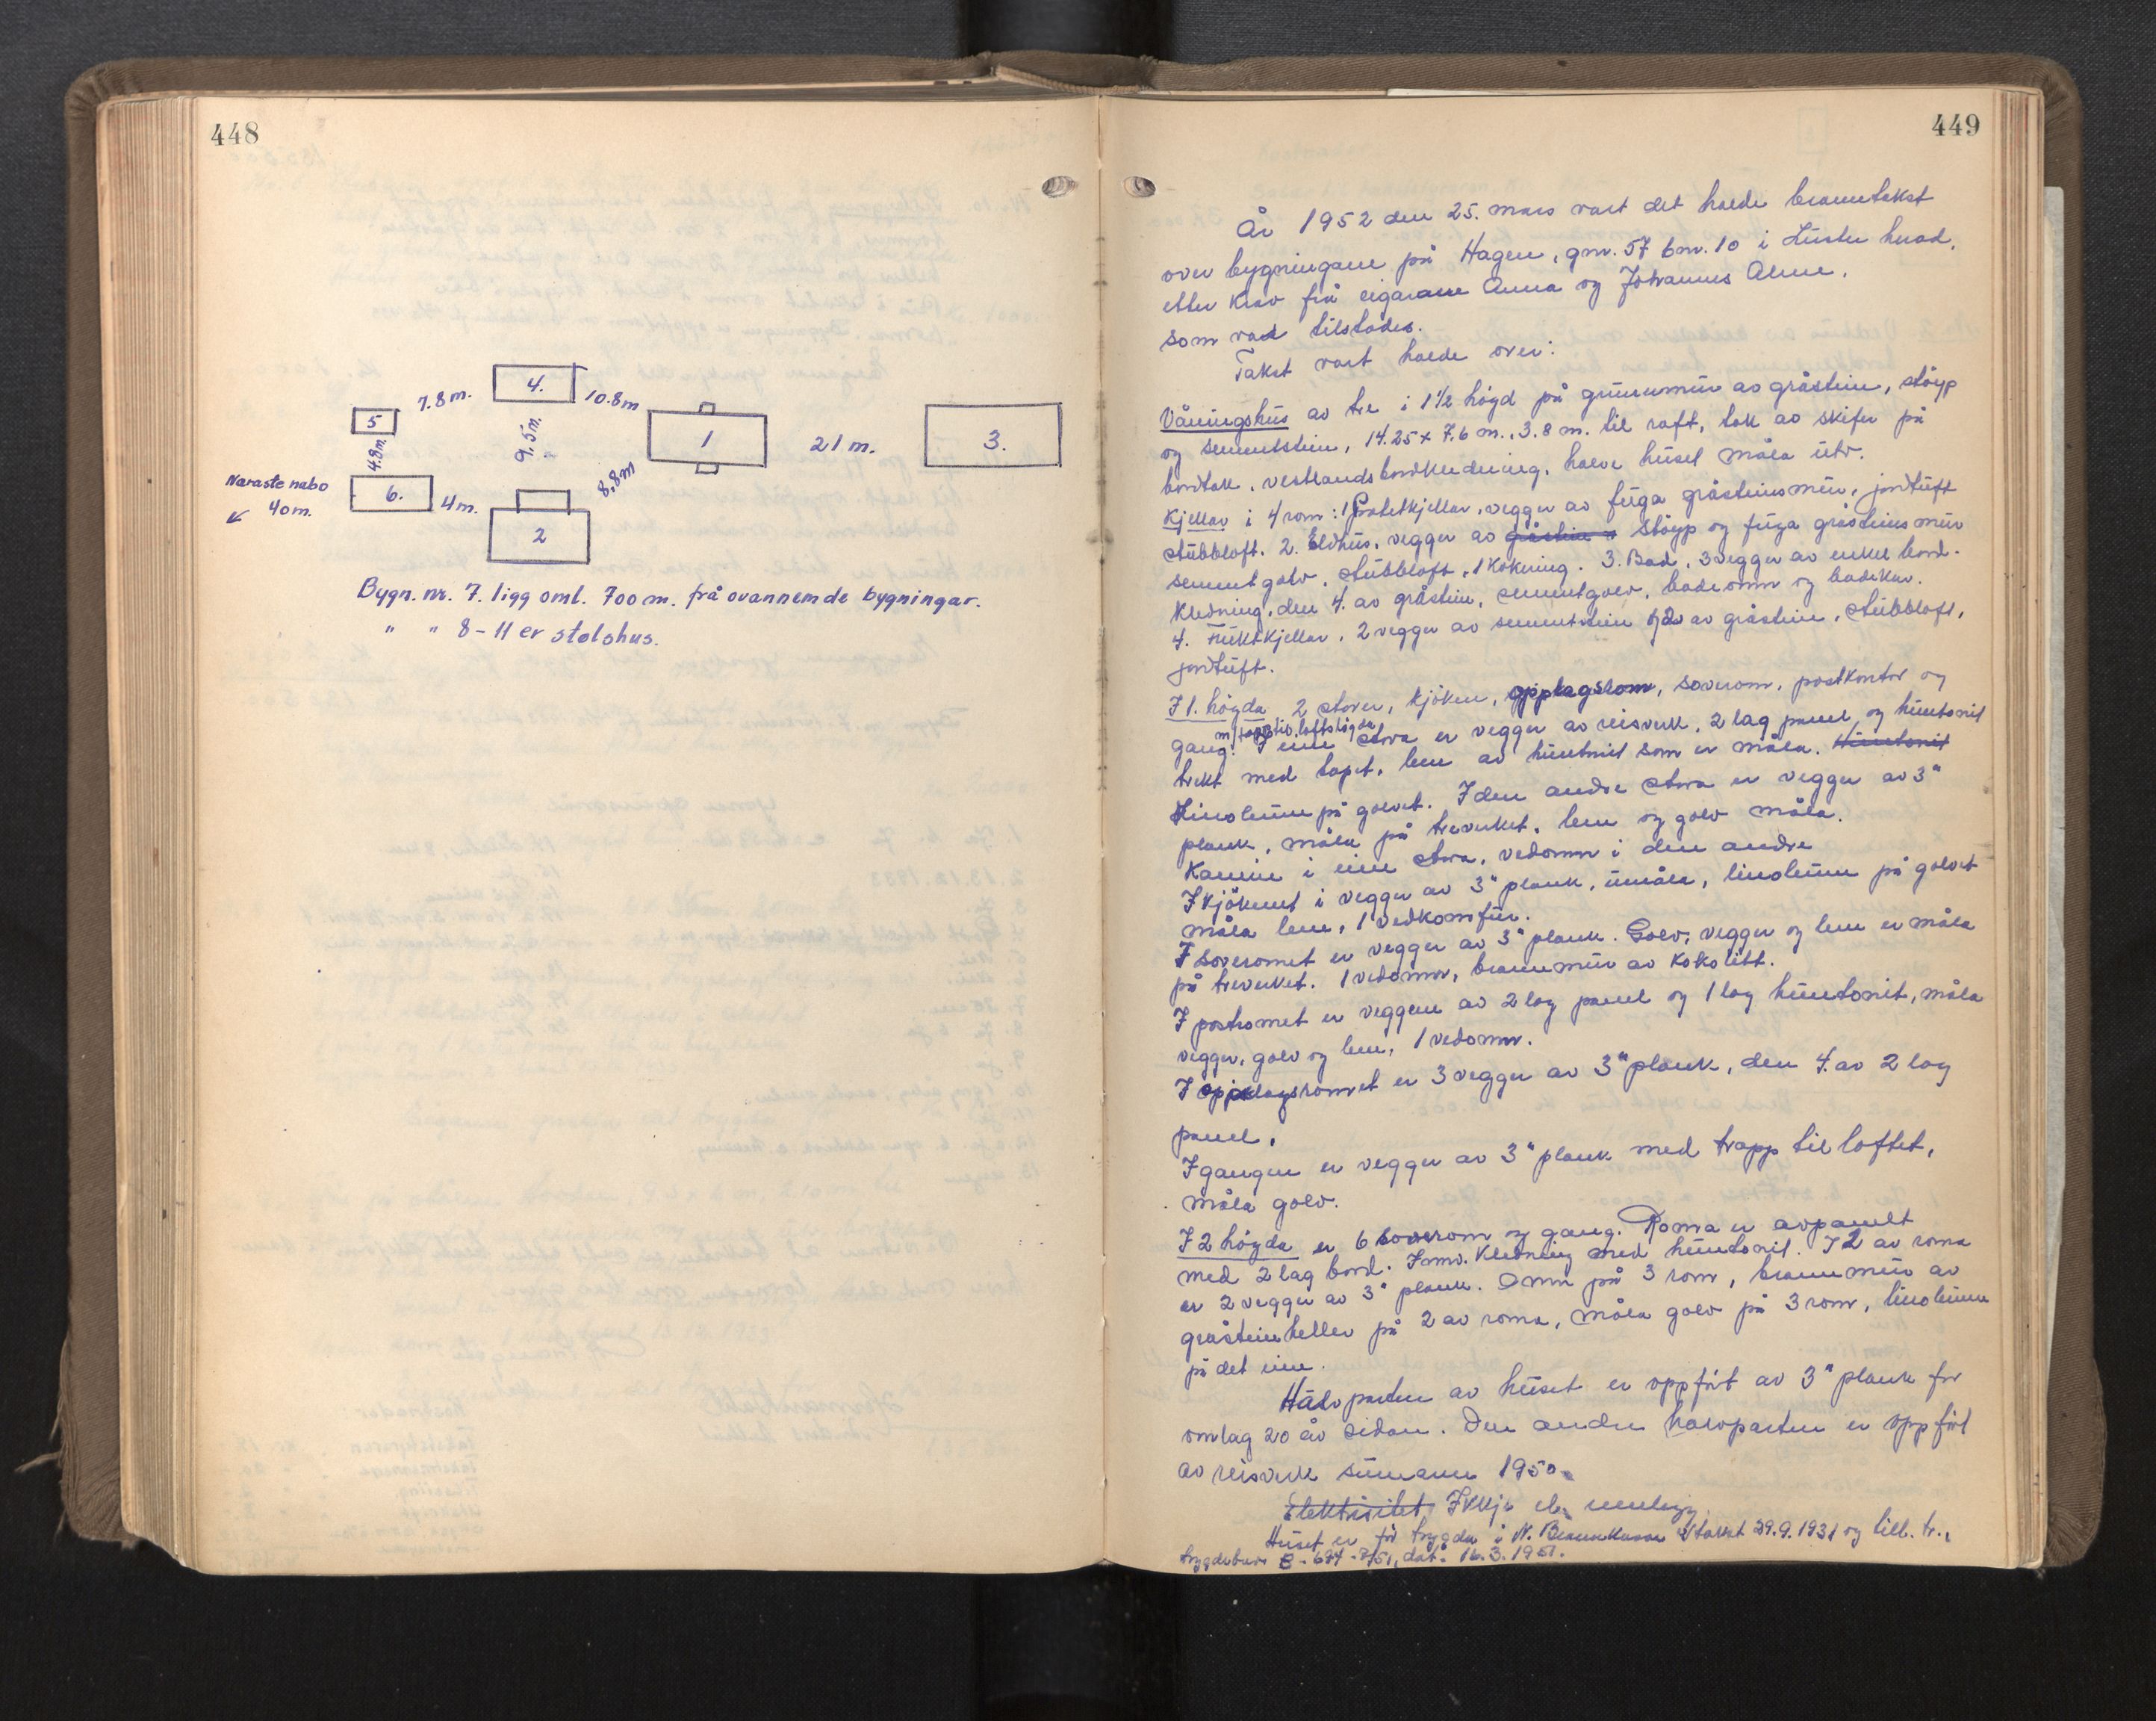 448
4.
7.8 m.
10.8 m
5
1
21 m.
3.
4.8 m.
9,5 m.
Næraste nabo
40 m.
6.
4 m.
8,8 m
2
Bygn. nr. 7. ligg oml. 700 m. frå ovannemde bygningar.
" " 8-11 er stølshus.
449
År 1952 den 25. mars vart det halde branntakst
over bygningane på Hagen, gnr. 57 bnr. 10 i Luster herad,
etter krav frå eigarane Anna og Johannes Alme,
som var tilstades.
Takst vart halde over:
Våningshus av tre i 1½ högd på grunnmur av gråstein, støyp
og sementstein, 14.25 x 7.6 m., 3.8 m. til raft, tak av skifer på
bordtak, vestlandsbordkledning, halve huset måla utv.
Kjellar i 4 rom: 1 Potetkjellar, vegger av fuga gråsteinsmur, jordtuft
stubbloft. 2. Eldhus, vegger av gråstein støyp og fuga gråsteinsmur
sementgolv, stubbloft, 1 kokering. 3. Bad, 3 vegger av enkel bord-
kledning, den 4. av gråstein, sementgolv, badeomn og badekar.
4. Fruktkjellar, 2 vegger av sementstein og 2 av gråstein, stubbloft,
jordtuft.
I 1. högda 2 stover, kjöken, opplagsrom, soverom, postkontor og
gang. I eine stova er vegger av reisverk, 2 lag panel og huntonit
trekt med tapet, lem av huntonit som er måla. Huntonit
Linoleum på golvet. I den andre stova er vegger av 3"
plank, måla på treverket, lem og golv måla.
Kamin i eine stova, vedomn i den andre
I kjökenet i vegger av 3" plank, umåla, linoleum på golvet
måla lem, 1 vedkomfur.
I soveromet er vegger av 3" plank. Golv, vegger og lem er måla
på treverket. 1 vedomn, brannmur av kokolitt.
I postromet er veggene av 2 lag panel og 1 lag huntonit, måla
vegger, golv og lem, 1 vedomn.
I opplagsromet er 3 vegger av 3" plank, den 4. av 2 lag
panel.
I gangen er vegger av 3" plank med trapp til loftet,
måla golv.
I 2 högda er 6 soverom og gang. Roma er avpanelt
med 2 lag bord. Innv. kledning med huntonit. I 2 av roma
er 2 vegger av 3" plank. Omn på 3 rom, brannmur av
gråsteinheller på 2 av roma, måla golv på 3 rom, linoleum
på det eine.
Halvparten av huset er oppfört av 3" plank for
omlag 20 år sidan. Den andre halvparten er oppfört
av reisverk sumaren 1950.
Elektrisitet Ikkje el.
Huset er för trygda i N. Brannkasse takst 29.9.1931 og till. tr.,
trygdebrev 16.3.1951.